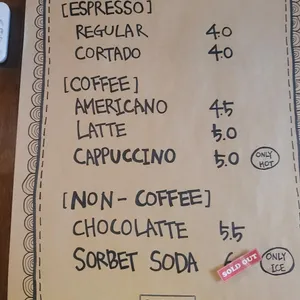 [ESPRESSO]
REGULAR 4.0
CORTADO 4.0
[COFFEE]
AMERICANO 4.5
LATTE 5.0
CAPPUCCINO 5.0 ONLY HOT
[NON-COFFEE]
CHOCOLATTE 5.5
SORBET SODA SOLD OUT ONLY ICE